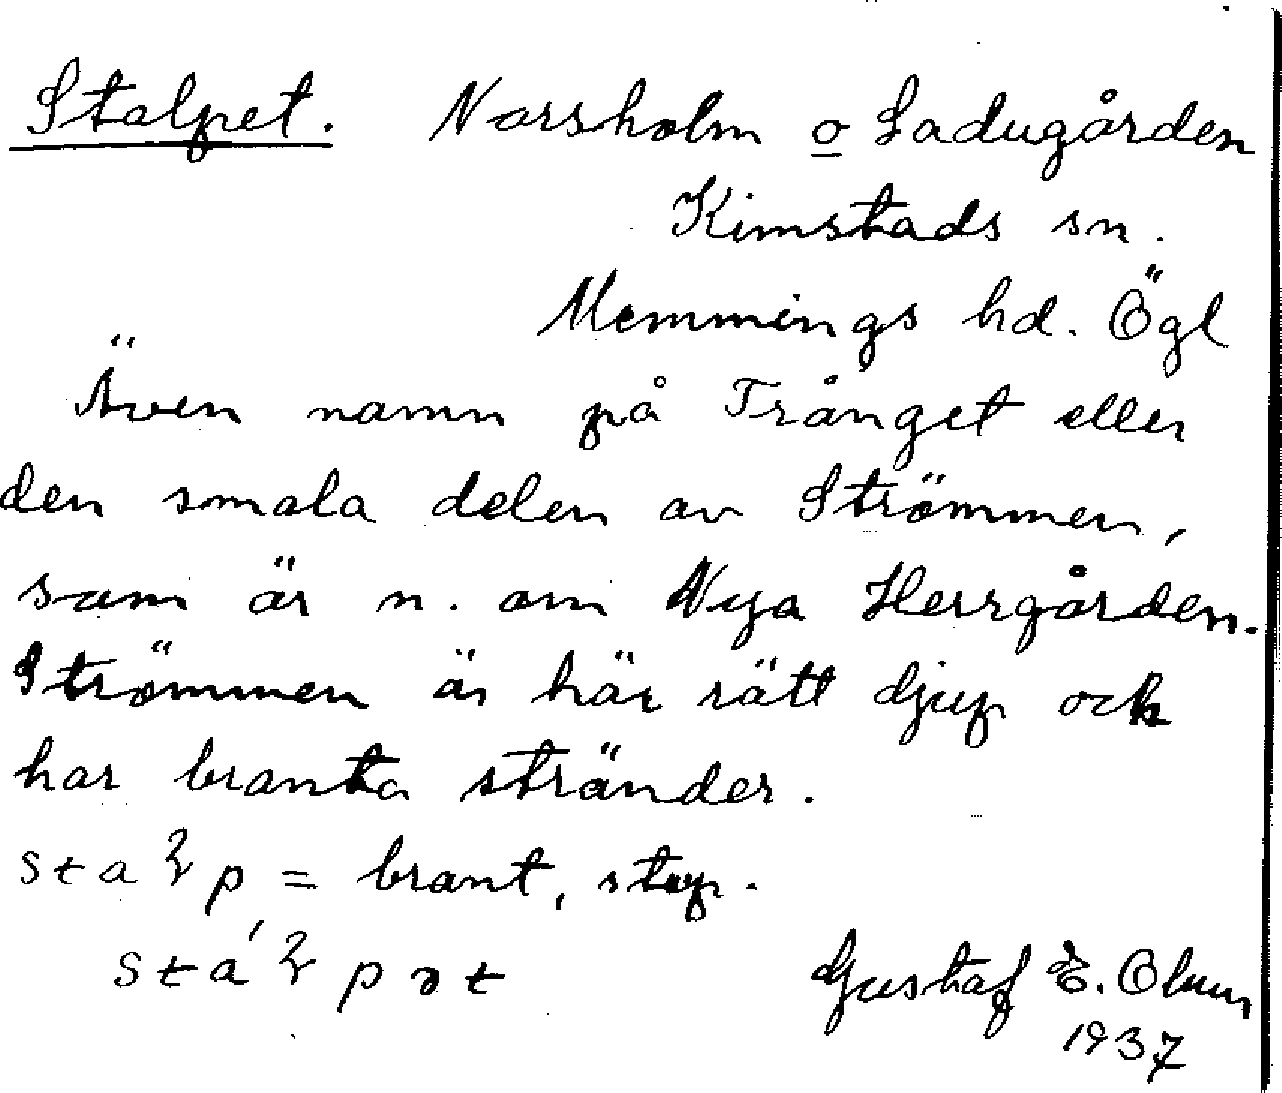 Stalpet. Norsholm o Ladugården
Kimstads sn.
Memmings hd. Ögl
Även namn på Trånget eller
den smala delen av Strömmen,
som är n. om Nya Herrgården.
Strömmen är här rätt djup ock
har branta stränder.
staꝜp = brant, stup.
stáꝜpət
Gustaf E. Olsson
1937